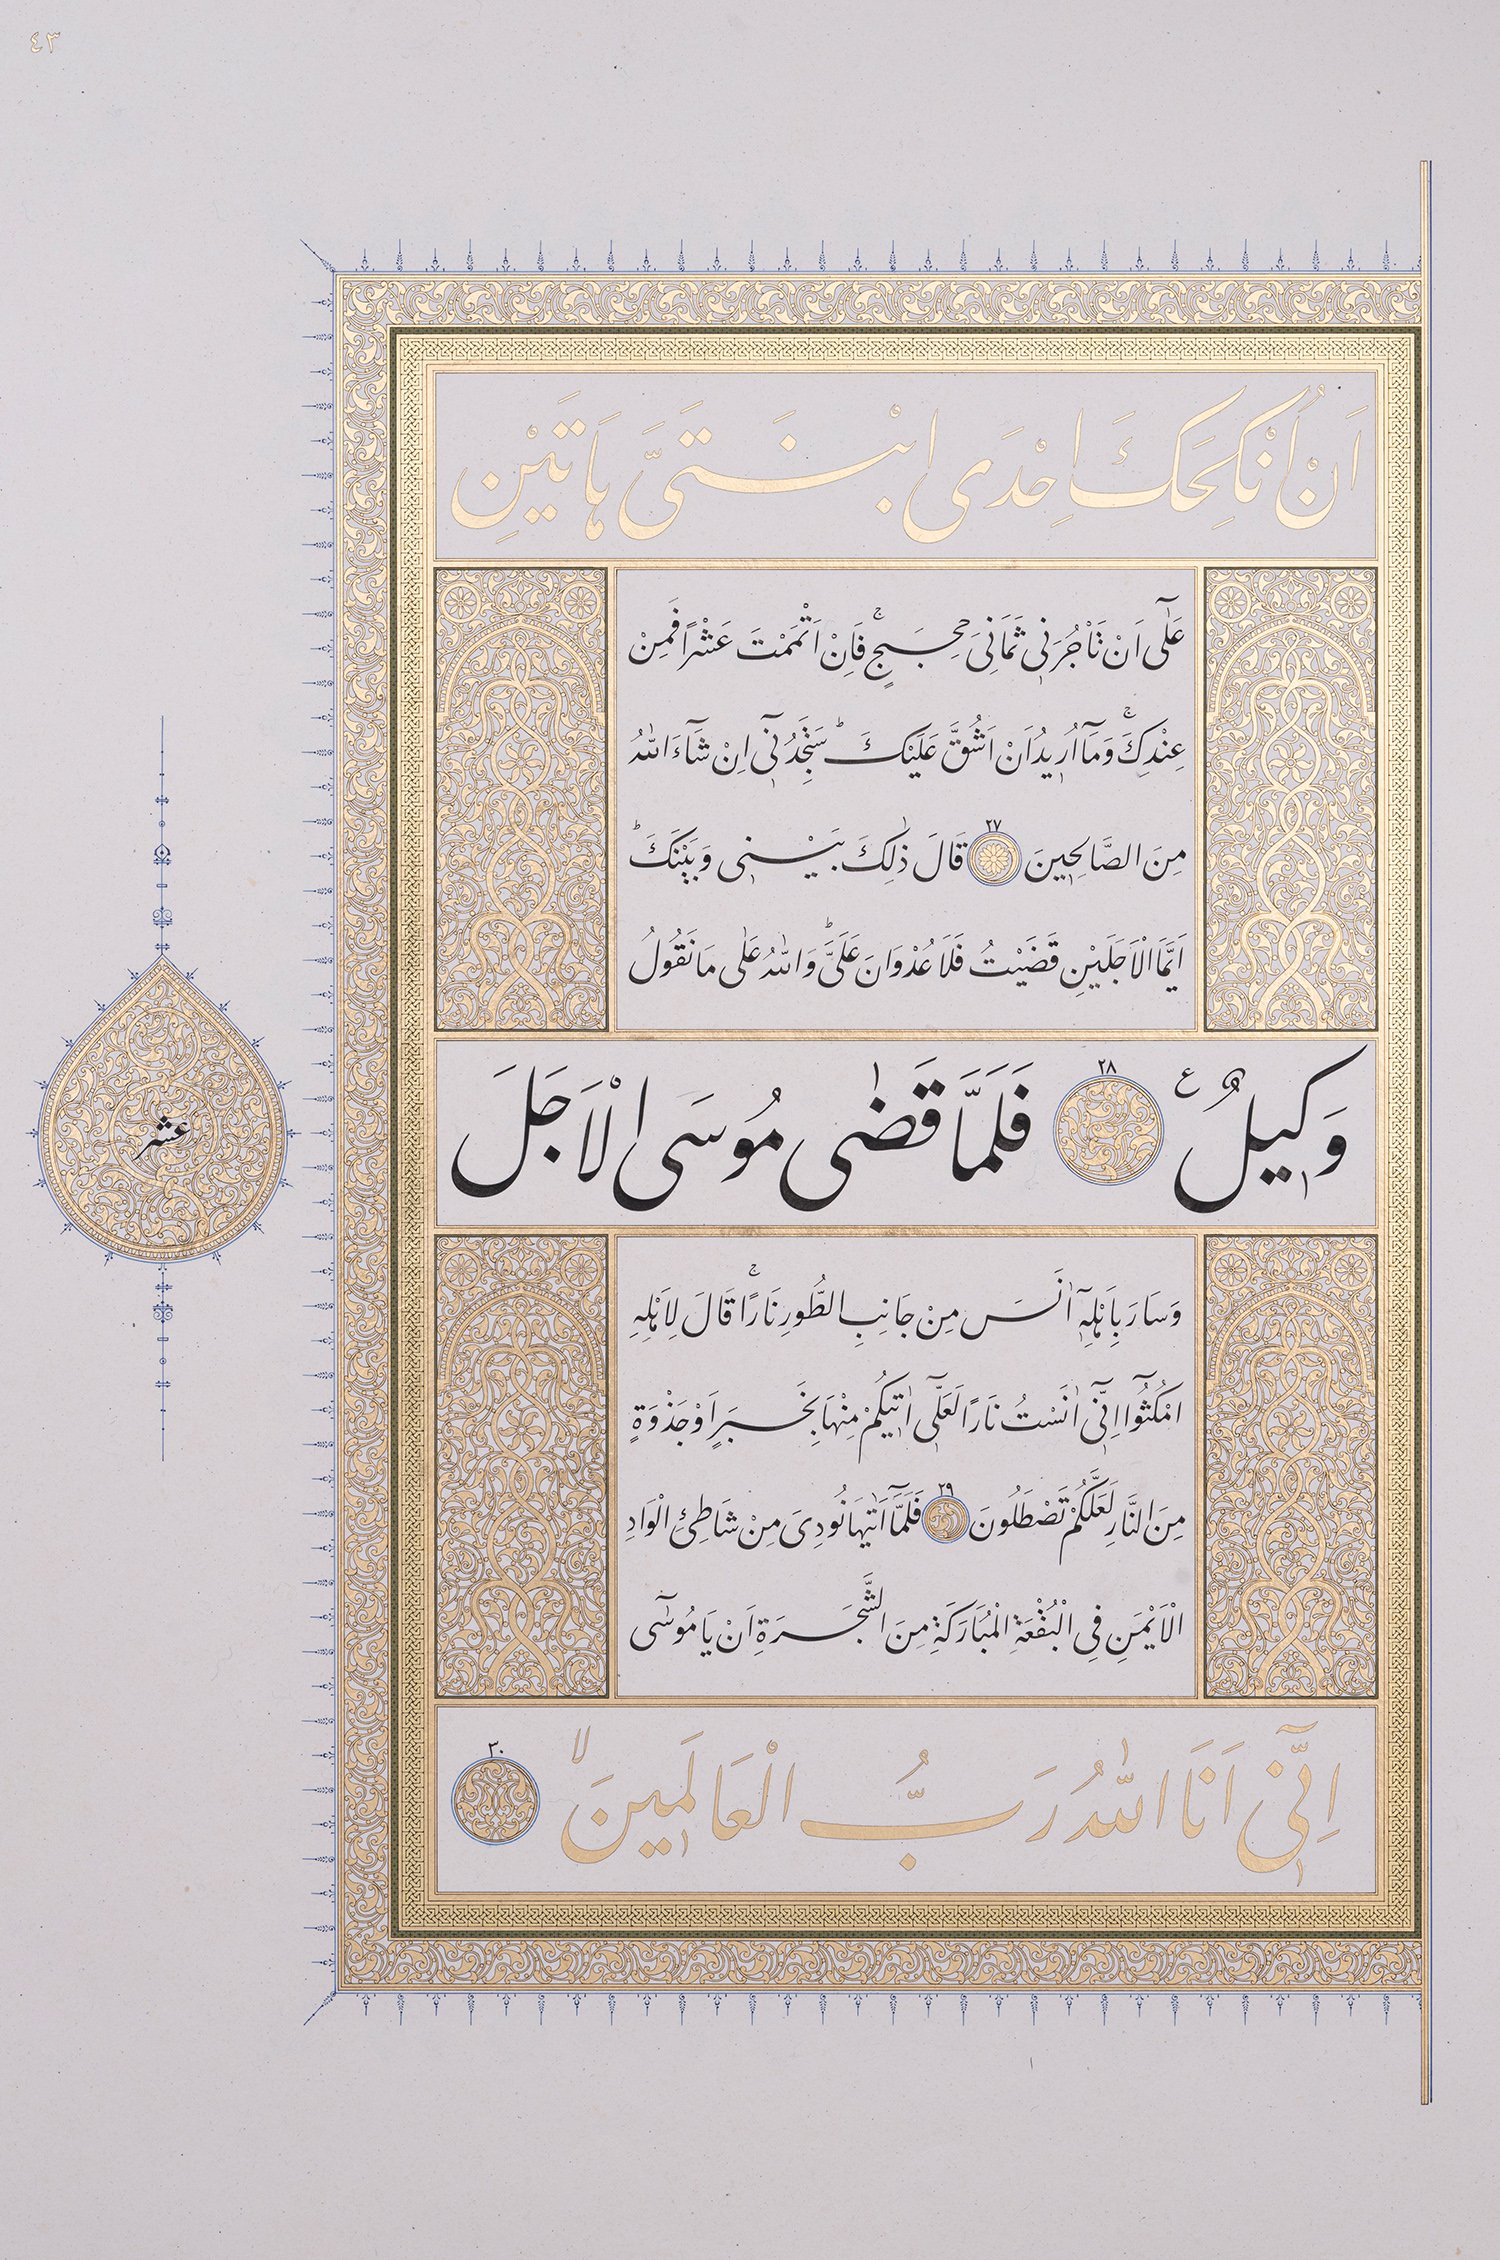 ٤٣
اَنْ اُنْكِحَكَ اِحْدَى ابْنَتَىَّ هَاتَيْنِ
عَلٰٓى اَنْ تَاْجُرَنٖى ثَمَانِىَ حِجَجٍۚ فَاِنْ اَتْمَمْتَ عَشْرًا فَمِنْ
عِنْدِكَۚ وَمَٓا اُرٖيدُ اَنْ اَشُقَّ عَلَيْكَؕ سَتَجِدُنٖٓى اِنْ شَٓاءَ اللّٰهُ
مِنَ الصَّالِحٖينَ ٢٧ قَالَ ذٰلِكَ بَيْنٖى وَبَيْنَكَؕ
اَيَّمَا الْاَجَلَيْنِ قَضَيْتُ فَلَا عُدْوَانَ عَلَىَّؕ وَاللّٰهُ عَلٰى مَا نَقُولُ
وَكٖيلٌ ع ٢٨ فَلَمَّا قَضٰى مُوسَى الْاَجَلَ
عشر
وَسَارَ بِاَهْلِهٖٓ اٰنَسَ مِنْ جَانِبِ الطُّورِ نَارًاۚ قَالَ لِاَهْلِهِ
امْكُثُٓوا اِنّٖٓى اٰنَسْتُ نَارًا لَعَلّٖٓى اٰتٖيكُمْ مِنْهَا بِخَبَرٍ اَوْ جَذْوَةٍ
مِنَ النَّارِ لَعَلَّكُمْ تَصْطَلُونَ ٢٩ فَلَمَّٓا اَتٰيهَا نُودِىَ مِنْ شَاطِئِ الْوَادِ
الْاَيْمَنِ فِى الْبُقْعَةِ الْمُبَارَكَةِ مِنَ الشَّجَرَةِ اَنْ يَا مُوسٰٓى
اِنّٖٓى اَنَا اللّٰهُ رَبُّ الْعَالَمٖينَۙ ٣٠